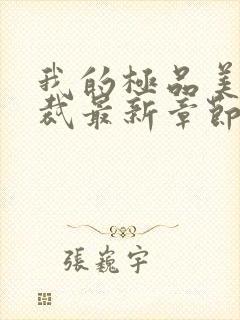 我的極品美
裁最新章節
張巍宇